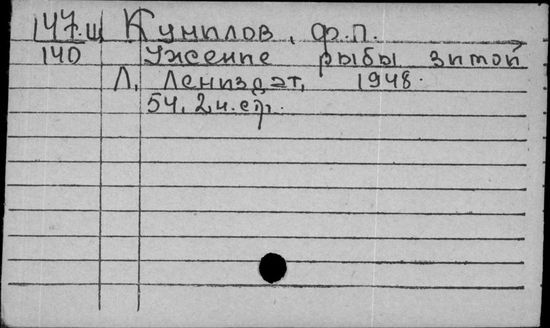 147.Щ Кунилов, Ф.П.
140 Ужение рыбы зимой
Л, Лениздат, 1948.
54, 2 н. стр.